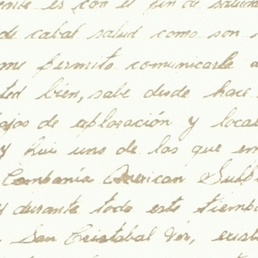 ente es con el fin de saluda
de cabal salud como son
me permito comunicarle a
ted bien, sabe desde hace
ajos de exploración y local
y hui uno de los que em
Companía American Subb
y durante todo este tiembo
San Cristobal Ver, exist